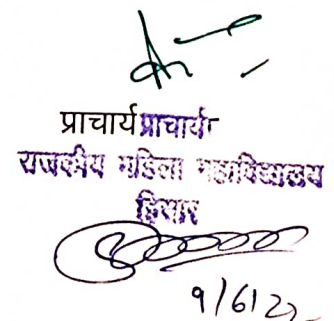 प्राचार्य प्राचार्या
राजकीय महिला महाविद्यालय
हिसार
9/6/22